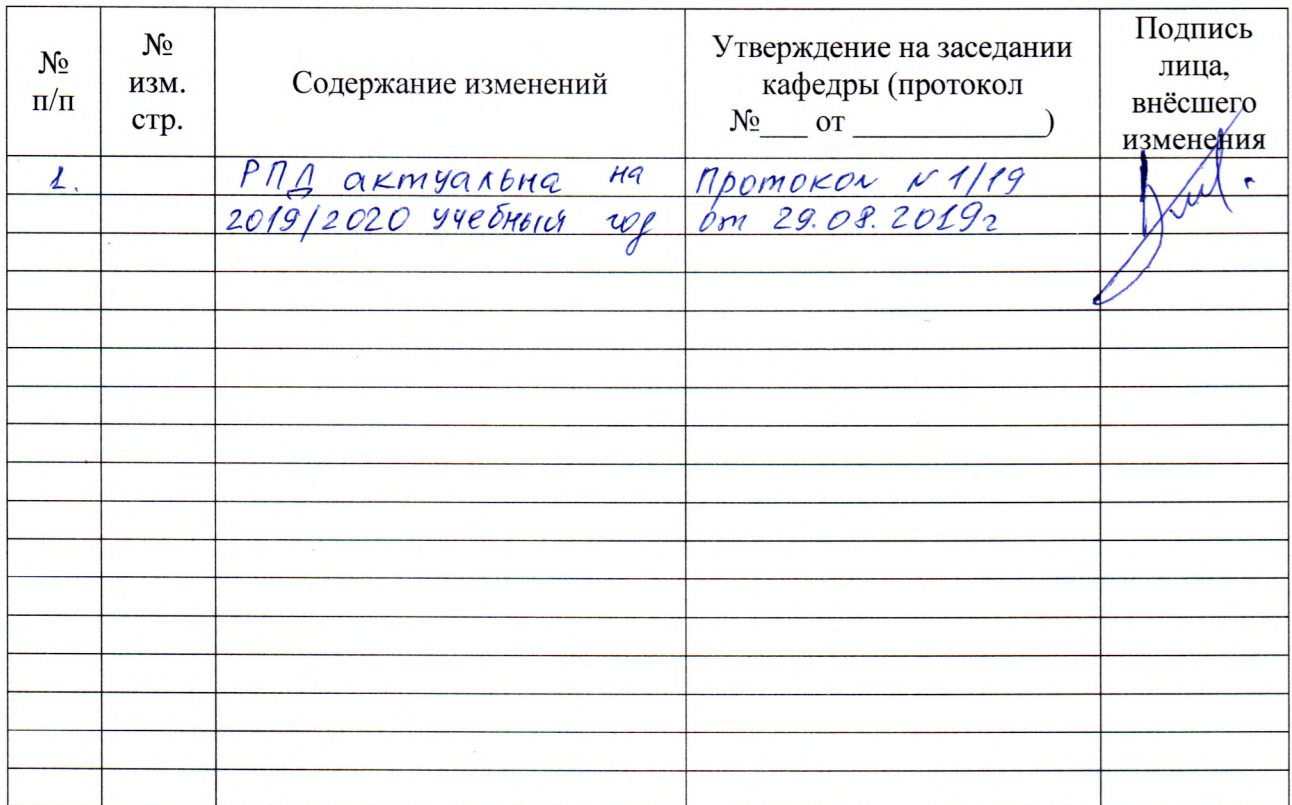 № п/п
№ изм. стр.
Содержание изменений
Утверждение на заседании
кафедры (протокол
№___ от _____________)
Подпись
лица,
внёсшего
изменения
1.
РПД актуальна на
2019/2020 учебный год
Протокол N 1/19
от 29.08.2019г